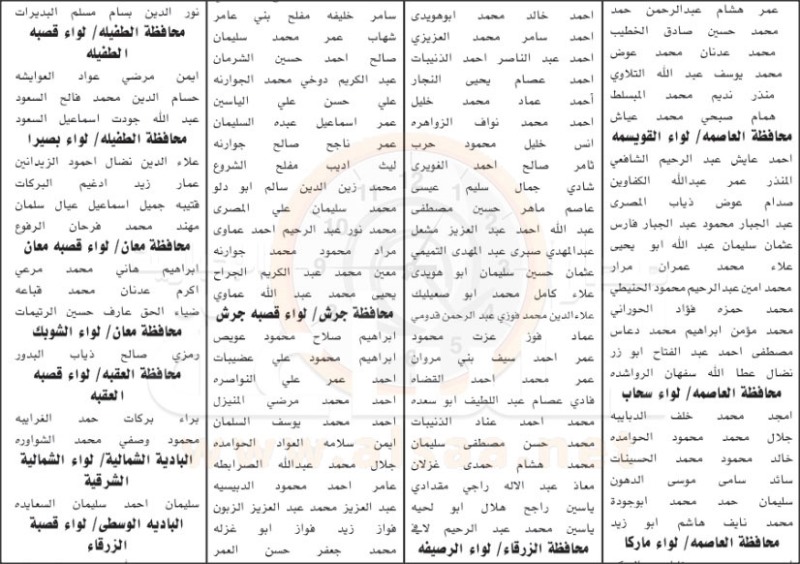 عمر هشام عبدالرحمن حمد
محمد حسين صادق الخطيب
محمد عدنان محمد عوض
محمد يوسف عبد الله التلاوي
منذر نديم محمد المبسلط
همام صبحي محمد عياش
محافظة العاصمه/ لواء القويسمه
احمد عايش عبد الرحيم الشافعي
المنذر عمر عبدالله الكفاوين
صدام عوض ذياب المصرى
عبد الجبار محمود عبد الجبار فارس
عثمان سليمان عبد الله ابو يحيى
علاء محمد عمران مرار
محمد امين عبد الرحيم محمود الحنيطي
محمد حمزه فؤاد الحوراني
محمد مؤمن ابراهيم محمد دعاس
مصطفى احمد عبد الفتاح ابو زر
نضال عطا الله سفهان الرواشده
محافظة العاصمه/ لواء سحاب
امجد محمد خلف الدبايبه
جلال محمد محمود الحوامده
خالد محمود محمد الحسينات
سائد سامى موسى الدهون
سليمان حمد محمد ابوجودة
محمد نايف هاشم ابو زيد
محافظة العاصمه/ لواء ماركا
احمد خالد محمد ابوهويدى
احمد سامر محمد العزيزي
احمد عبد الناصر احمد الذنيبات
احمد عصام يحيى النجار
أحمد عماد محمد خليل
احمد محمد نواف الزواهره
انس خليل محمود حرب
ثامر صالح احمد الغويرى
شادي جمال سليم عيسى
عاصم ماهر حسين مصطفى
عبد الله احمد عبد العزيز مشعل
عبدالمهدي صبرى عبد المهدى التميمي
عثمان حسين سليمان ابو هويدى
علاء كامل محمد ابو صعيليك
علاءالدين محمد فوزي عبد الرحمن قدومي
عماد فوز عزت محمود
عمر احمد سيف بني مروان
عمر محمد احمد القضاه
فادي عصام عبد اللطيف ابو سعده
محمد احمد عناد الذنيبات
محمد حسن مصطفى سليمان
محمد هشام حمدى غزلان
معاذ عبد الاله راجي مقدادي
ياسين راجح هلال ابو لحيه
ياسين محمد عبد الرحيم لافي
محافظة الزرقاء/ لواء الرصيفه
سامر خليفه مفلح بني عامر
شهاب عمر محمد سليمان
صالح احمد حسين الشرمان
عبد الكريم دوخي محمد الجوارنه
علي حسن علي الياسين
عمر اسماعيل عبده السليمان
عمر ناجح صالح جوارنه
ليث اديب مفلح الشروع
محمد زين الدين سالم ابو دلو
محمد سليمان علي المصرى
محمد نور عبد الرحيم احمد عماوى
مراد محمود محمد جوارنه
معين محمد عبد الكريم الجراح
يحيى محمد عبد الله عماوي
محافظة جرش/ لواء قصبه جرش
ابراهيم صلاح محمود عويص
ابراهيم محمود علي عضيبات
احمد عمر علي النواصره
احمد محمد مرضي المنيزل
احمد محمد يوسف السلمان
ايمن سلامه العواد الحوامده
جلال محمد عبدالله الصرابطه
عامر احمد محمود الدبيسيه
عبد العزيز محمد عبد العزيز الزبون
زيد فواز فواز ابو غزله
محمد جعفر حسن العمر
نور الدين بسام مسلم البديرات
محافظة الطفيله/ لواء قصبه
الطفيله
ايمن مرضي عواد العوايشه
حسام الدين محمد فالح السعود
عبد الله جودت اسماعيل السعود
محافظة الطفيله/ لواء بصيرا
علاء الدين نضال احمود الزيدانين
عمار زيد ادغيم البركات
قتيبه جميل اسماعيل عيال سلمان
مهند محمد فرحان الرفوع
محافظة معان/ لواء قصبه معان
ابراهيم هاني محمد مرعي
اكرم عدنان محمد قباعه
ضياء الحق عارف حسين الرتيمات
محافظة معان/ لواء الشوبك
رمزي صالح ذياب البدور
محافظة العقبه/ لواء قصبة
العقبه
براء بركات حمد الغراييه
محمود وصفي محمد الشواوره
البادية الشمالية/ لواء الشمالية
الشرقية
سليمان احمد سليمان السعايده
الباديه الوسطى/ لواء قصبة
الزرقاء
www.alsaa.net